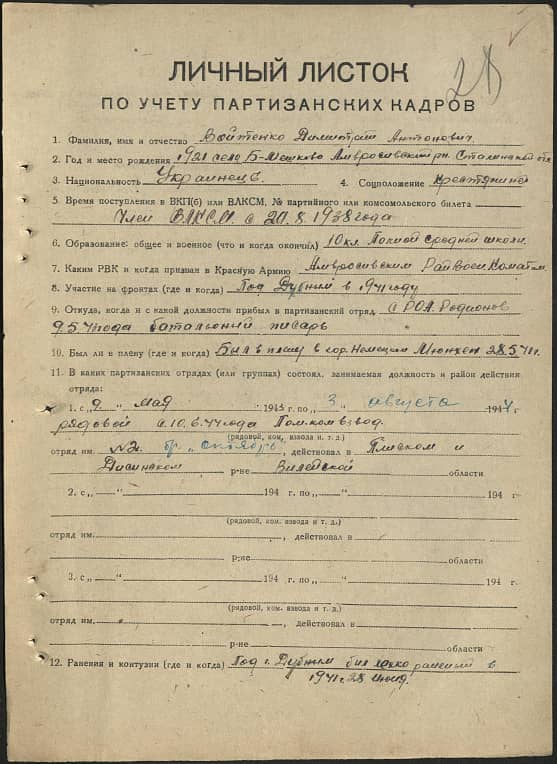 ЛИЧНЫЙ ЛИСТОК
ПО УЧЕТУ ПАРТИЗАНСКИХ КАДРОВ
1. Фамилия, имя и отчество Войтенко Димитрий Антонович.
2. Год и место рождения 1921 село Б-Мешково Амвросиевский рн. Сталинской обл
3. Национальность Украинец 4. Соцположение Крестьянин
5. Время поступления в ВКП(б) или ВЛКСМ, № партийного или комсомольского билета
Член ВЛКСМ с 20.8.1938 года
6. Образование: общее и военное (что и когда окончил) 10 кл. Полной средней школы.
7. Каким РВК и когда призван в Красную Армию Амвросиевским Райвоенкоматом.
8. Участие на фронтах (где и когда) Под Дубным в 1941 году
9. Откуда, когда и с какой должности прибыл в партизанский отряд с РОА. Родионов
батальонный писарь
10. Был ли в плену (где и когда) Был в плену в гор. Мюнхен
11. В каких партизанских отрядах (или группах) состоял, занимаемая должность и район действия
отряда:
1. с „ мая 194 г. по „ 3 " августа 1944
рядовой с 10.6.44 года Пом. ком взвод.
(рядовой, ком. взвода и т. д.)
отряд им. №2. бр. „Октябрь", действовал в Плиском и
Дисинском р-не Вилейской области
2. с „ " 194 г. по „ " 194 г.
(рядовой, ком. взвода и т. д.)
отряд им. , действовал в
р-не области
3. с „ " 194 г. по „ " 194 г.
(рядовой, ком. взвода и т. д.)
отряд им. , действовал в
р-не области
12. Ранения и контузии (где и когда) Под г. Дубным был легко раненый в
1941 г. 28 июня.